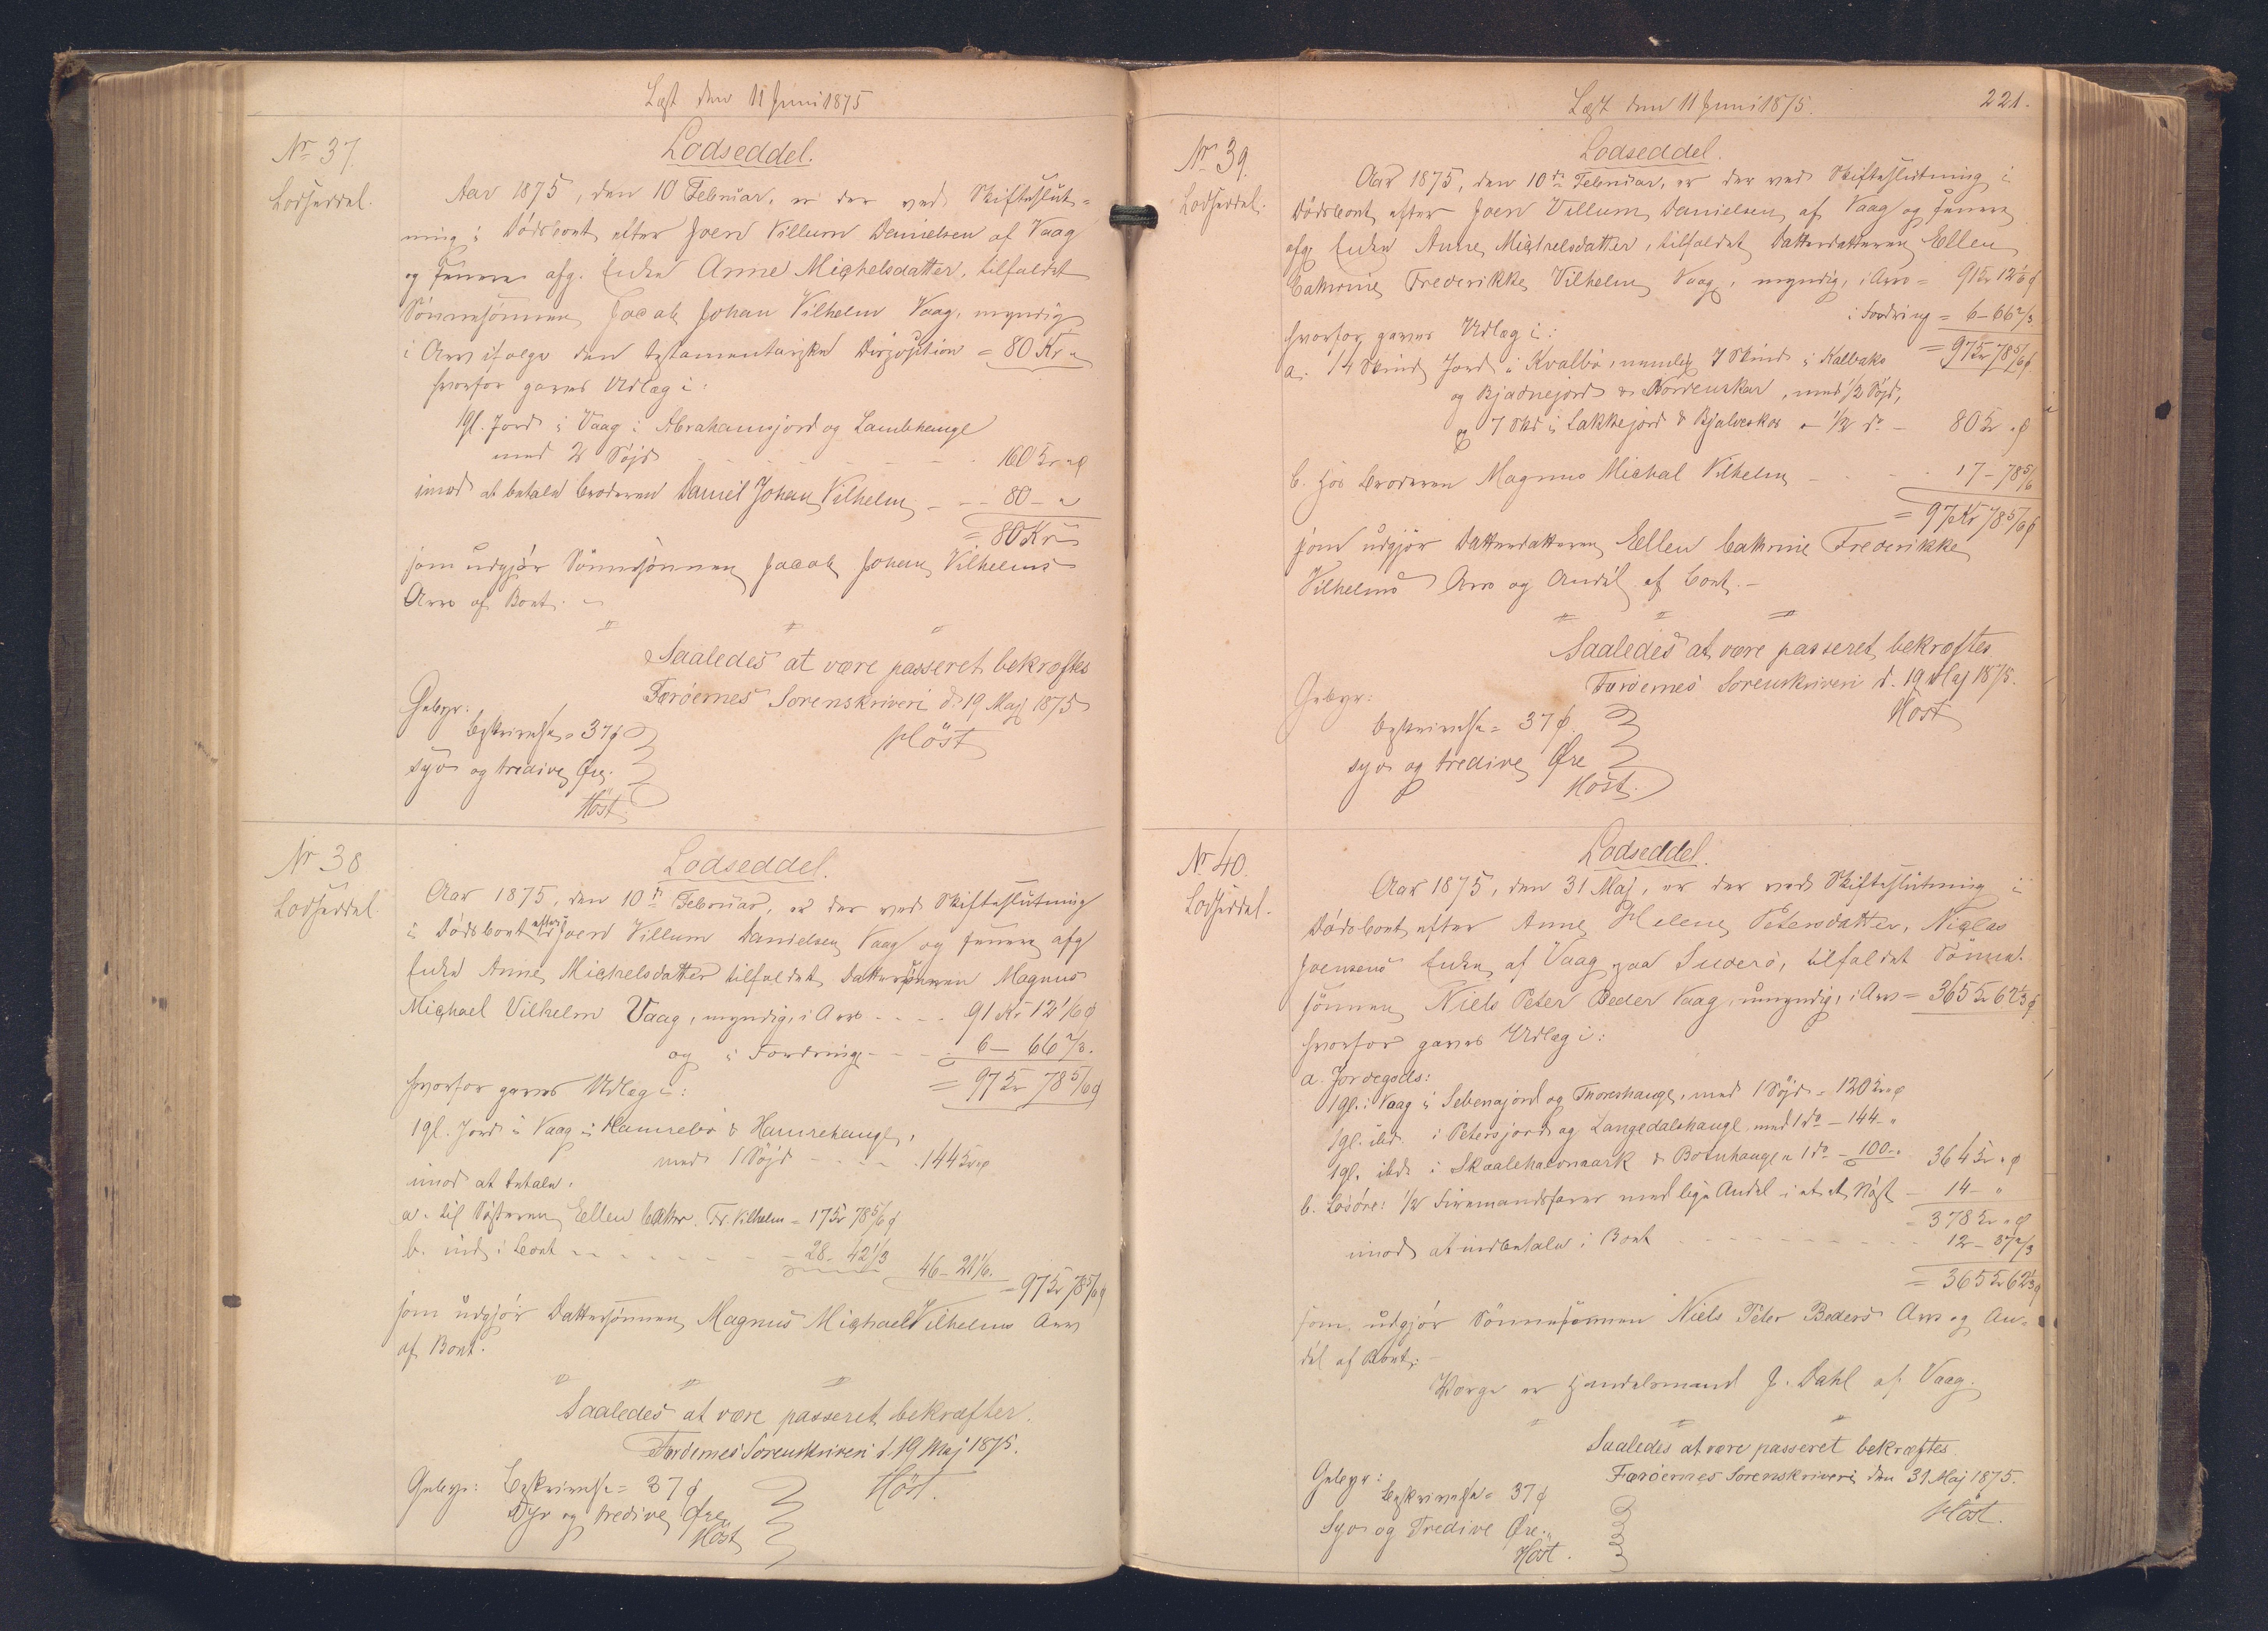 Læst den 11 Juni 1875
Nr 37.
Lodseddel.
Lodseddel.
Aar 1875, den 10 Februar, er der ved Skifteslut-
ning i Dödsboet efter Joen Villum Danielsen af Vaag
og senere afg. Enke Anne Michelsdatter, tilfaldet
Sönnesönnen Jacob Johan Vilhelm Vaag, myndig,
i Arv ifølge den testamentariske Disposition = 80 Kr "
hvorfor gaves Udlæg i:
1 gl. Jord i Vaag i Abrahamsjord og Lambheugl
med 2 Söjd - - - - 160 Kr " ø
imod at betale Broderen Daniel Johan Vilhelm - - 80 - "
= 80 Kr "
som udgjör Sönnesönnen Jacob Johan Vilhelms
Arv af Boet. -
Saaledes at være passeret bekræftes
Færöernes Sorenskriveri d. 19 Maj 1875
Höst
Gebyr:
Beskrivelse = 37 ø
syv og tredive Øre.
Höst.
Nr 38
Lodseddel.
Lodseddel.
Aar 1875, den 10de Februar, er der ved Skifteslutning
i Dödsboet efter Joen Villum Danielsen Vaag og senere afg
Enke Anne Michelsdatter tilfaldet Dattersönnen Magnus
Michael Vilhelm Vaag, myndig, i Arv - - - - 91 Kr 12 1/6 ø
og i Fordring - - - 6 - 66 2/3.
hvorfor gaves Udlæg i: = 97 Kr 78 5/6 ø
1 gl. Jord i Vaag i Hamrebö & Hamreheugl,
med 1 Söjd - - - - 144 Kr " ø
imod at betale.
a. til Søsteren Ellen Cathr. Fr. Vilhelm = 17 Kr 78 5/6 ø
b. ind i Boet - - - - - 28 - 42 1/3 46 - 21 1/6.
= 97 Kr 78 5/6 ø
som udgjör Dattersönnen Magnus Michael Vilhelms Arv
af Boet.
Saaledes at være passeret bekræfter.
Færöernes Sorenskriveri d. 19 Maj 1875.
Höst.
Gebyr: Beskrivelse = 37 ø
Syv og tredive Øre
Höst
Læst den 11 Juni 1875.
221.
Nr 39.
Lodseddel.
Lodseddel.
Aar 1875, den 10de Februar, er der ved Skifteslutning i
Dödsboet efter Joen Villum Danielsen af Vaag og senere
afg Enke Anne Michelsdatter, tilfaldet Datterdatteren Ellen
Cathrine Frederikke Vilhelm Vaag, myndig, i Arv = 91 Kr 12 1/6 ø
i Fordring = 6 - 66 2/3
hvorfor gaves Udlæg i: = 97 Kr 78 5/6 ø
a. 14 Skind Jord i Kvalbö, nemlig 7 Skind i Kalbaks
og Bjadnejord & Nordenskar, med 1/2 Söjd,
og 7 Skd i Lakkejord & Bjalveskor - 1/2 do - 80 Kr " ø
b. hos Broderen Magnus Michal Vilhelm - - - 17 - 78 5/6
= 97 Kr 78 5/6 ø
som udgjör Datterdatteren Ellen Cathrine Frederikke
Vilhelms Arv og Andel af Boet. -
Saaledes at være passeret, bekræftes
Færöernes Sorenskriveri d. 19 Maj 1875.
Höst
Gebyr:
Beskrivelse = 37 ø.
syv og tredive Øre
Höst.
Nr 40.
Lodseddel.
Lodseddel.
Aar 1875, den 31 Maj, er der ved Skifteslutning i
Dödsboet efter Anne Helene Petersdatter, Niclas
Joensens Enke af Vaag paa Suderö, tilfaldet Sönne-
sönnen Niels Peter Beder Vaag, umyndig, i Arv = 365 Kr 62 1/3 ø
hvorfor gaves Udlæg i:
a. Jordegods:
1 gl. i Vaag i Sebenajord og Thoreshaugl, med 1 Söjd = 120 Kr " ø
1 gl. ibd. i Petersjord og Langedalshaugl med 1 do - 144 - "
1 gl. ibd i Skaalehavnmark & Botnhaugl " 1 do - 100 - " 364 Kr " ø
b. Løsøre: 1/2 Firemandsfarer med lige Andel i et et Nøst - 14 - "
= 378 Kr " ø
imod at indbetale i Boet - - - - - - 12 - 37 2/3
= 365 Kr 62 1/3 ø
som udgjör Sönnesönnen Niels Peter Beders Arv og An-
del af Boet. -
Værge er Handelsmand J. Dahl af Vaag.
Saaledes at være passeret bekræftes
Færöernes Sorenskriveri, den 31 Maj 1875.
Höst.
Gebyr:
Beskrivelse = 37 ø
Syv og Tredive Øre.
Höst.